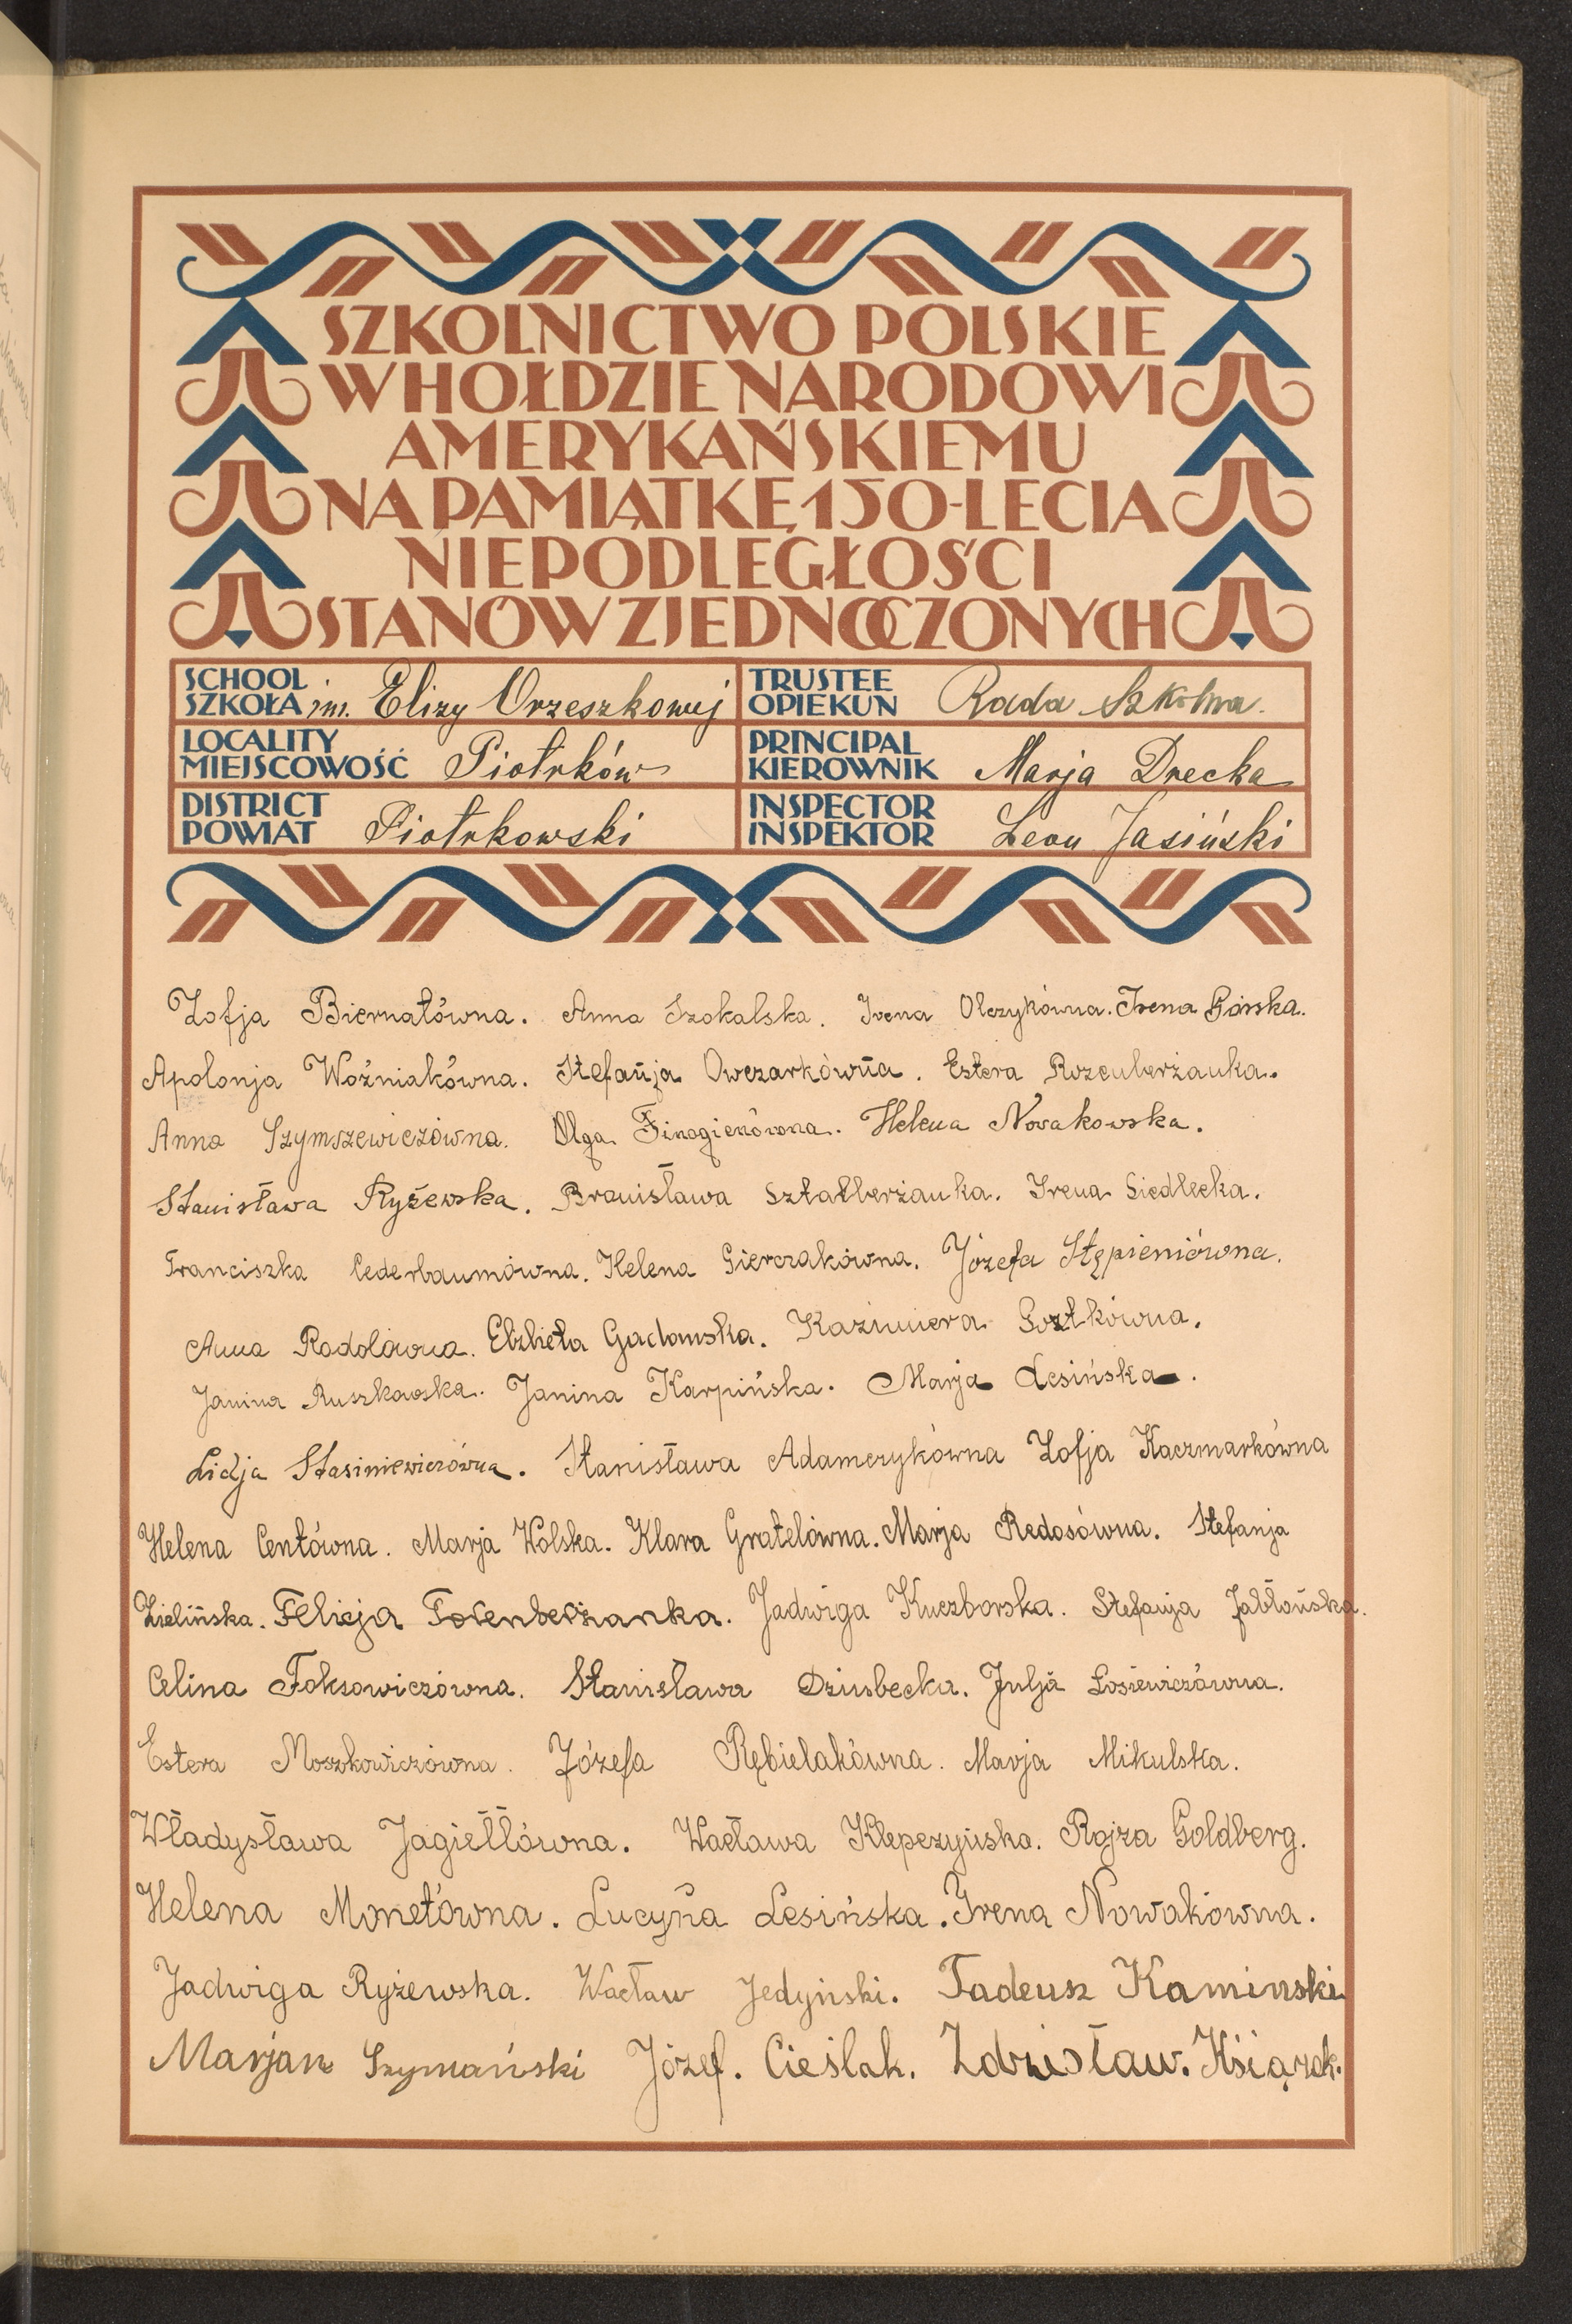 SZKOLNICTWO POLSKIE
W HOŁDZIE NARODOWI
AMERYKAŃSKIEMU
NA PAMIĄTKĘ 150-LECIA
NIEPODLEGŁOŚCI
STANÓW ZJEDNOCZONYCH
SCHOOL
SZKOŁA im. Elizy Orzeszkowej
TRUSTEE
OPIEKUN Rada Szkolna.
LOCALITY
MIEJSCOWOŚĆ Piotrków
PRINCIPAL
KIEROWNIK Marja Drecka
DISTRICT
POWIAT Piotrkowski
INSPECTOR
INSPEKTOR Leon Jasiński
Zofja Biernatówna. Anna Szokalska. Irena Olczykówna. Irena Górska.
Apolonja Woźniakówna. Stefanja Owczarkówna. Estera Rozenberżanka.
Anna Szymszewiczówna. Olga Finogienówna. Helena Nowakowska.
Stanisława Ryżewska. Bronisława Sztatlerżanka. Irena Siedlecka.
Franciszka Cederbaumówna. Helena Gierczakówna. Józefa Stępieniówna.
Anna Rodolówna. Elżbieta Gadomska. Kazimiera Gostkówna.
Janina Ruszkowska. Janina Karpińska. Marja Lesińska.
Lidja Stasiniewiczówna. Stanisława Adamczykówna Zofja Kaczmarkówna
Helena Centówna. Marja Wolska. Klara Gratelówna. Marja Redosówna. Stefanja
Zielińska. Felicja Forenberżanka. Jadwiga Kuczborska. Stefanja Jabłońska.
Celina Foksowiczówna. Stanisława Dziubecka. Julja Łosiewiczówna.
Estera Moszkowiczówna. Józefa Rębielakówna. Marja Mikulska.
Władysława Jagiełłówna. Wacława Klepczyńska. Rojza Goldberg.
Helena Monetówna. Lucyna Lesińska. Irena Nowakówna.
Jadwiga Ryżewska. Wacław Jedyński. Tadeusz Kaminski
Marjan Szymański Józef. Cieślak. Zdzisław. Książek.